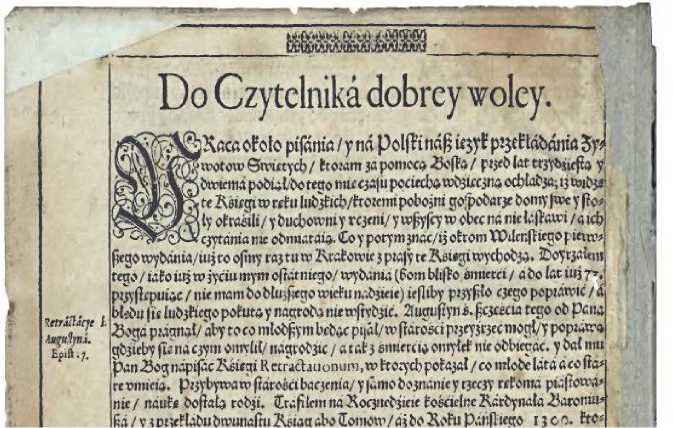 Do Czytelniká dobrey woley.
PRaca około pisánia / y ná Polski náß ięzyk przekłádánia Zy-
wotow Swiętych / ktoram zá pomocą Boską / przed lat trzydziestą y
dwiemá podiął / do tego mię czásu pociechą wdzięczną ochładza: iż widzę
te Księgi w ręku ludzkich / ktoremi pobożni gospodarze domy swe y sto-
ły okrásili / y duchowni y rczeni / y wßyscy w obec ná nie łáskáwi / á ich
czytánia nie odmiátáią. Co y po tym znáć / iż okrom Wileńskiego pierw-
ßego wydánia / iuż to osmy raz tu w Krákowie z prásy te Księgi wychodzą. Doyrzałem
tego / iáko iuż w życiu mym ostátniego / wydánia (bom blisko śmierci / á do lat iuż 7
przystępuiąc / nie mam do dłuższego wieku nádzieie) iesliby przyßło czego popráwić / á
błędu się ludzkiego pokutą y nagrodą nie wstydzić. Augustyn ś. ßczęścia tego od Páná
Bogá prágnął / áby to co młodßym będąc pisał / w stárości przeyźrzeć mogł / y popráwą
gdzieby się ná czym omylił / nágrodzić / á ták z śmiercią omyłek nie odbiegáć. y dał mu
Pan Bog nápisáć Księgi Retractationum, w ktorych pokazał / co młode látá á co stá-
re vmieią. Przybywa w stárości baczenia / y sámo doznánie y rzeczy rękomá piástowá-
nie / náukę dostáłą rodzi. Tráfiłem ná Rocznedzieie kościelne Kárdynałá Baroniu-
ßá / y z przekłádu dwunastu Kśiąg ábo Tomow / áż do Roku Páńskiego 1300. kto-
Retráctácye ś.
Augustyná.
Epist: 7.